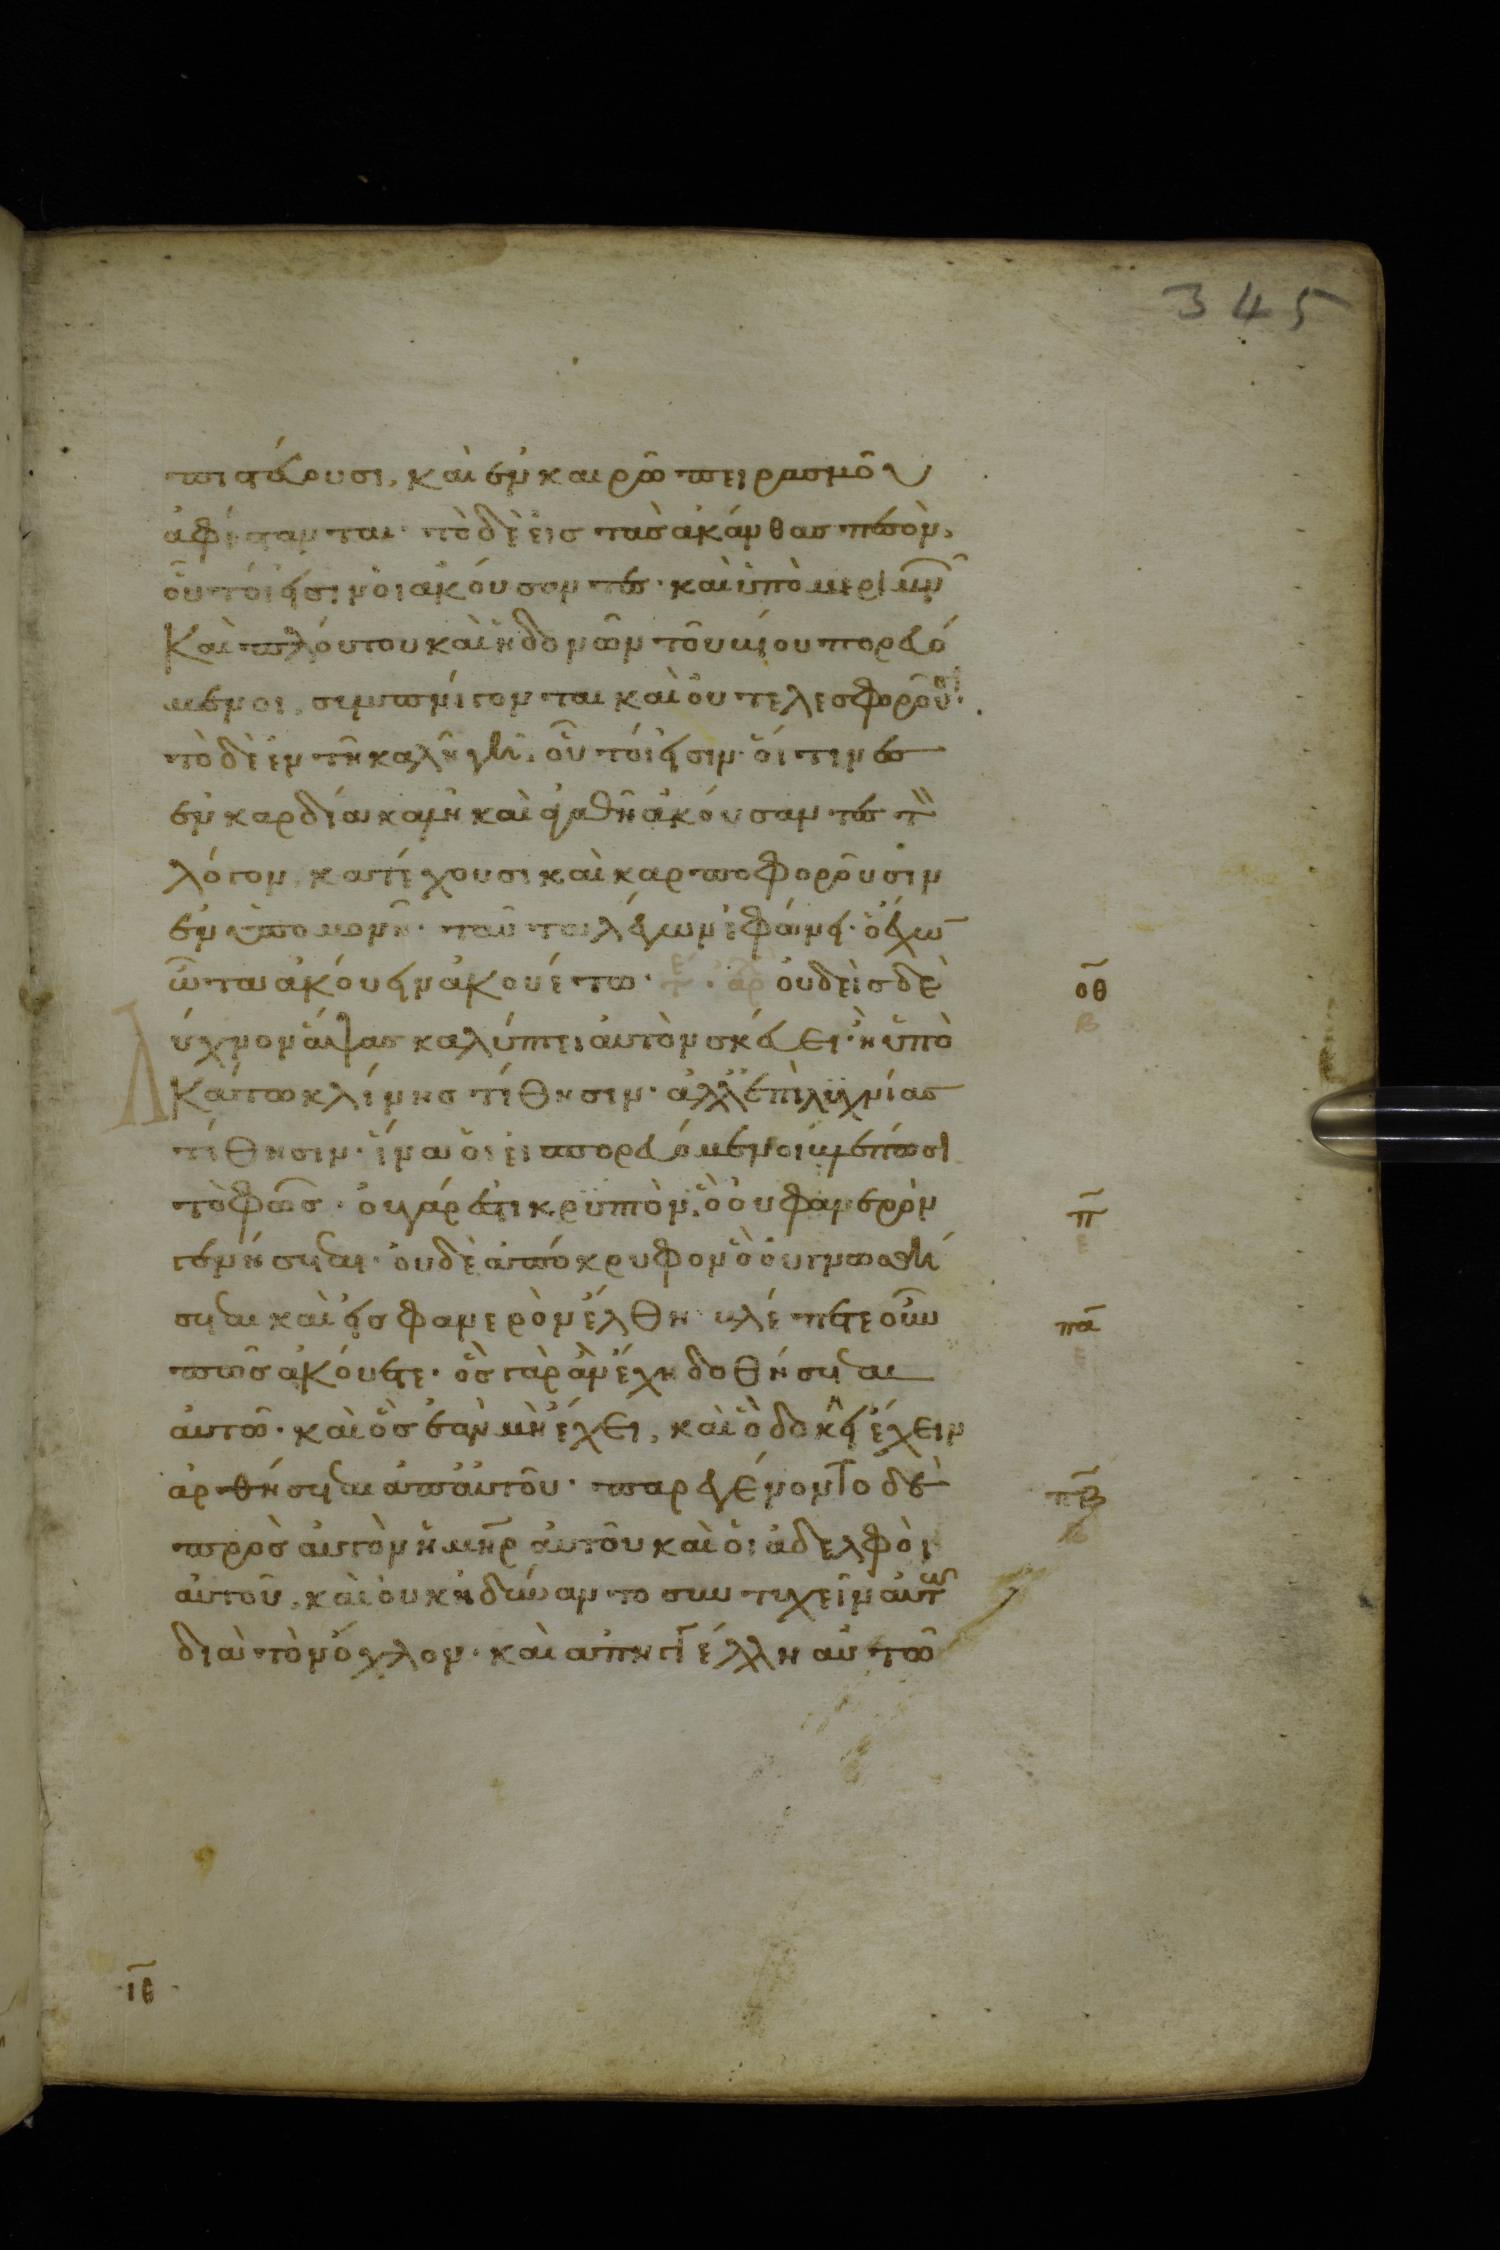 345
πιστεύουσι, και ἐν καιρῶ πειρασμοῦ
ἀφίστανται· τὸ δὲ εἰς τὰς ἀκάνθας πεσὸν,
οὗτοί εἰσιν οἱ ἀκούσαντες· καὶ ὑπὸ μεριμνῶν
Καὶ πλούτου καὶ ἡδονῶν τοῦ βίου πορευό
μενοι, συμπνίγονται καὶ οὐ τελεσφοροῦσι·
τὸ δὲ ἐν τῆ καλῆ γῆ, οὗτοί εἰσιν· οἵτινες
ἐν καρδία καλῆ καὶ ἀγαθῆ ἀκούσαντες τὸν
λόγον, κατέχουσι καὶ καρποφοροῦσιν
ἐν ὑπομονῆ· ταῦτα λέγων ἐφώνει· ὁ ἔχων
ὦτα ἀκούειν ἀκουέτω· τέ· ἀρ οὐδεὶς δὲ
οθ
β
λύχνον ἅψας καλύπτει αὐτὸν σκεύει· ἢ ὑπὸ
Κάτω κλίνης τίθησιν· ἀλλ' ἐπὶ λυχνίας
τίθησιν· ἵνα οἱ εἰσπορευόμενοι βλέπωσι
τὸ φῶς· οὐ γάρ ἐστι κρυπτὸν, ὃ οὐ φανερὸν
π
ε
γενήσεται· οὐδὲ ἀπόκρυφον ὃ οὐ γνωσθή
σεται καὶ εἰς φανερὸν ἔλθη· βλέπετε οὖν
πα
ε
πῶς ἀκούετε· ὃς γὰρ ἂν ἔχη δοθήσεται
αὐτῶ· καὶ ὃς ἐὰν μὴ ἔχει, καὶ ὃ δοκεῖ ἔχειν
ἀρθήσεται ἀπ' αὐτοῦ· παρεγένοντο δὲ
πβ
πρὸς αὐτὸν ἡ μηρ αὐτοῦ καὶ οἱ ἀδελφοὶ
αὐτοῦ, καὶ οὐκ ἠδύναντο συντυχεῖν αὐτῶ
διὰ τὸν ὄχλον· καὶ ἀπηγγέλλη αὐτῶ
ιθ